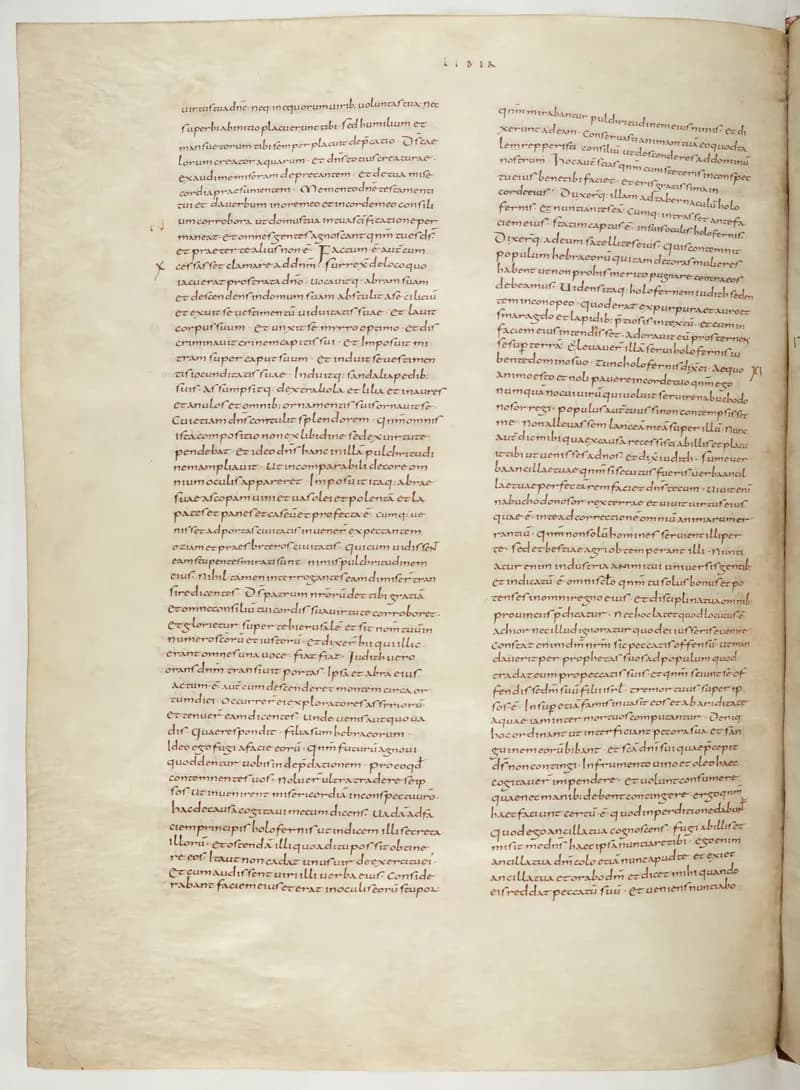 LIBIA
uirtustuadnē· neq; inequorumuirib; uoluntastua· nec
superbiabinitio placuerunttibi· sedhumilium et
mansuetorum tibisemper placuit dep̄catio· Dscae
lorum creatoraquarum· etdn̄stotiuscreaturae·
exaudimemiseram deprecantem· etdetua mise
cordiapraesumentem· Mementodnē testamenti
tui et dauerbum inoremeo etincordemeo consili
um corrobora utdomustua intuasc̄ificationeper
maneat· etomnesgentesagnoscant qnm̄ tuesds̄
et praeter tealiusnon ē· Factum· ē· aut̄ cum
cessasset clamare addnm̄· surrexit delocoquo
iacuerat prostrataadn̄o· uocauitq· abram suam
et descendensindomum suam abstulitase ciliciū
etexuit seuestimentū uiduitatis suae· Et lauit
corpussuum· Et unxit se myrro optimo· et dis
criminauit crinemcapitissui· et imposuit mi
tram super caput suum· et induit seuestimen
tisiocunditatis suae· Induitq; sandaliapedib;
suis· assumpsitq; dextraliola et lilia et inaures
etanulosetomnib; ornamentissuisornauitse·
Cuietiam dn̄scontulit splendorem· qnm̄omnis
istacompositio nonexlibidine sedexuirtute
pendebat· et ideodn̄shanc inillā pulchritudi
nemampliauit· ut incomparabili decoreom
niumoculisappareret· Imposuit itaq; abrae
suaeascopamuini etuasolei etpolentā et la
patesetpanesetcaseū etprofectaē· cumq; ue
nissetadportāciuitatisinuener̄ expectantem
oziam etpraesbiteros ciuitatis· quicum uidissent
eamstupentesmiratisunt nimispulchritudinem
eius· Nihil tamen interrogantes eamdimiser̄ tran
siredicentes· Ds̄patrum nr̄orū det tibi gratiā
etomneconsiliū tuicordis suauirtute corroboret·
etglorietur super tehierusalē et sit nom̄ tuūin
numeroscōrū etiustorū· etdixer̄ hi qui illic
erantomnesunauoce· fiat fiat· Judithuero
oransdnm̄ transiuit portas· ipsa et abra eius
actum· ē· aut̄ cum descenderet montem circa or
tumdiei· occurrer̄ ei exploratoresassiriorū·
et tenuer̄ eam dicentes· unde uenisautquoua
dis· quaerespondit· filiasum hebraeorum·
ideoego fugi afacie eorū· qnm̄ futurūagnoui
quoddentur uobisin dep̄dationem· proeoqd̄
contemnentesuos· noluer̄ultrotradere seip
sos ut inuenirent misericordiā inconspectuur̄o·
hacdecausacogitauimecumdicens· Uadāadfa
ciemprincipis holofernis utindicem illisecreta
illorū· et ostendā illi quoaditu possit obtine
re eos· Itaut noncadat unusuir deexercitueius·
etcumaudissent uiri illi uerbaeius· conside
rabant faciemeius et erat inoculiseorū stupor
qnm̄mirabantur pulchritudinemeiusnimis· et di
xeruntadeam· conseruastianimamtuā eoquodta
lemrepperisti consiliū· utdescenderesaddominū
nostrum· hocautē scias qnm̄ cumsteterisinconspec
tueius benetibi faciet· eterisgratissimain
cordeeius· Duxerq; illam adtabernaculūholo
fernis et nuntianteseā· cumq; intrassetantefa
ciemeius· statim captusē· insuisoculisholofernis·
Dixerq; adeum satellitesūeius· quis contemnit
populum hebraeorū quitam decorasmulieres
habent ut nonprohismerito pugnare contraeos
debeamus· Uidensitaq; holofernem iudith seden
tem inconopeo· quoderat expurpura et auro et
smaragdo et lapidib; p̄tiosisintextū· et cum in
faciem eius intendisset· adorauit eū prosternes
sesuperterrā· eleuauer̄ illā seruiholofernis iu
bentedominosuo· Tuncholofernisdix̄ei· aequo
animoesto etnoli pauereincordetuo· qnm̄ego
numquanocui uirū quiuoluit seruirenabuchodo
nosor regi· populusaut̄ tuus sinoncontempsisset
me· nonalleuassem lanceāmeā superillū· nunc
aut̄ dicmihi quaexcausarecessistiabillis et placu
it tibi ut uenissesadnos· et dix̄ iudith· sumeuer
baancillae tuae· qnm̄ si secutus fueris uerbaancil
laetuae perfectārem faciet dn̄stecum· uiuit enī
nabuchodonosor rex terrae et uiuit uirtus eius
quae· ē· inteadcorrectioneomniū animarumer
rantiū· qnm̄ nonsolūhomines seruient illi per
te· sed et bestiae agri obtemperant illi· nunti
atur enim industria animi tui uniuersisgentib;
et indicatū· ē· omni sēlo qnm̄ tu solus bonus et po
tenses inomniregnoeius· et disciplinatuaomnib;
prouinciis p̄dicatur· nec hoc latet quod locutusē
achior nec illud ignoratur quodei iusserisuenire·
Constat enim dm̄ nrm̄ sic peccatis offensū· ut man
dauerit per prophetas suosad populum quod
tradateum propeccatis suis· et qnm̄ sciunt seof
fendissedm̄ suū filii isrl̄· tremor tuus super ip
sos· ē· Insuper etiā fames inuasit eos et abariditate
aquae iam inter mortuos computantur· Deniq;
hoc ordinant ut interficiant pecora sua et san
guinem eorū bibant· et scā dn̄i sui quaep̄cepit
ds̄ non contingi· Infrumento uino et oleo haec
cogitauer̄ impendere· et uolunt consumere
quaenec manib; debent contingere· ergoqnm̄
haec faciunt certū· ē· quod imperditionedabunt̄
Quod ego ancillatua cognoscens· fugi abillis et
misit medn̄s haec ipsa nuntiaretibi· ego enim
ancillatua dm̄ colo etiā nuncapudte· et exiet
ancillatua et orabo dm̄ et dicet mihi quando
eis reddat peccatū suū· et ueniens nuntiabo